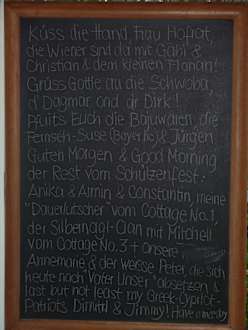 Küss die Hand Frau Hofrat,
die Wiener sind da mit Gabi &
Christian & dem kleinen Florian!
Grüss Gottle au die Schwoba,
d'Dagmar ond dr Dirk!
Pfüits Euch die Bajuwaren, die
Fernseh-Suse (Bayer Rc) & Jürgen,
Guten Morgen & Good Morning
der Rest vom Schützenfest:
Anika & Armin & Constantin, meine
"Dauerlutscher" vom Cottage No.1,
der Silbengol-Clan mit Mitchell
vom Cottage No.3 + onsere
Annemarie & der weisse Peter, die sich
heute noch "Vater Unser" absetzen, &
last but not least my Greek-Cypriot-
Patriots Dimitri & Jimmy! Have a nice day